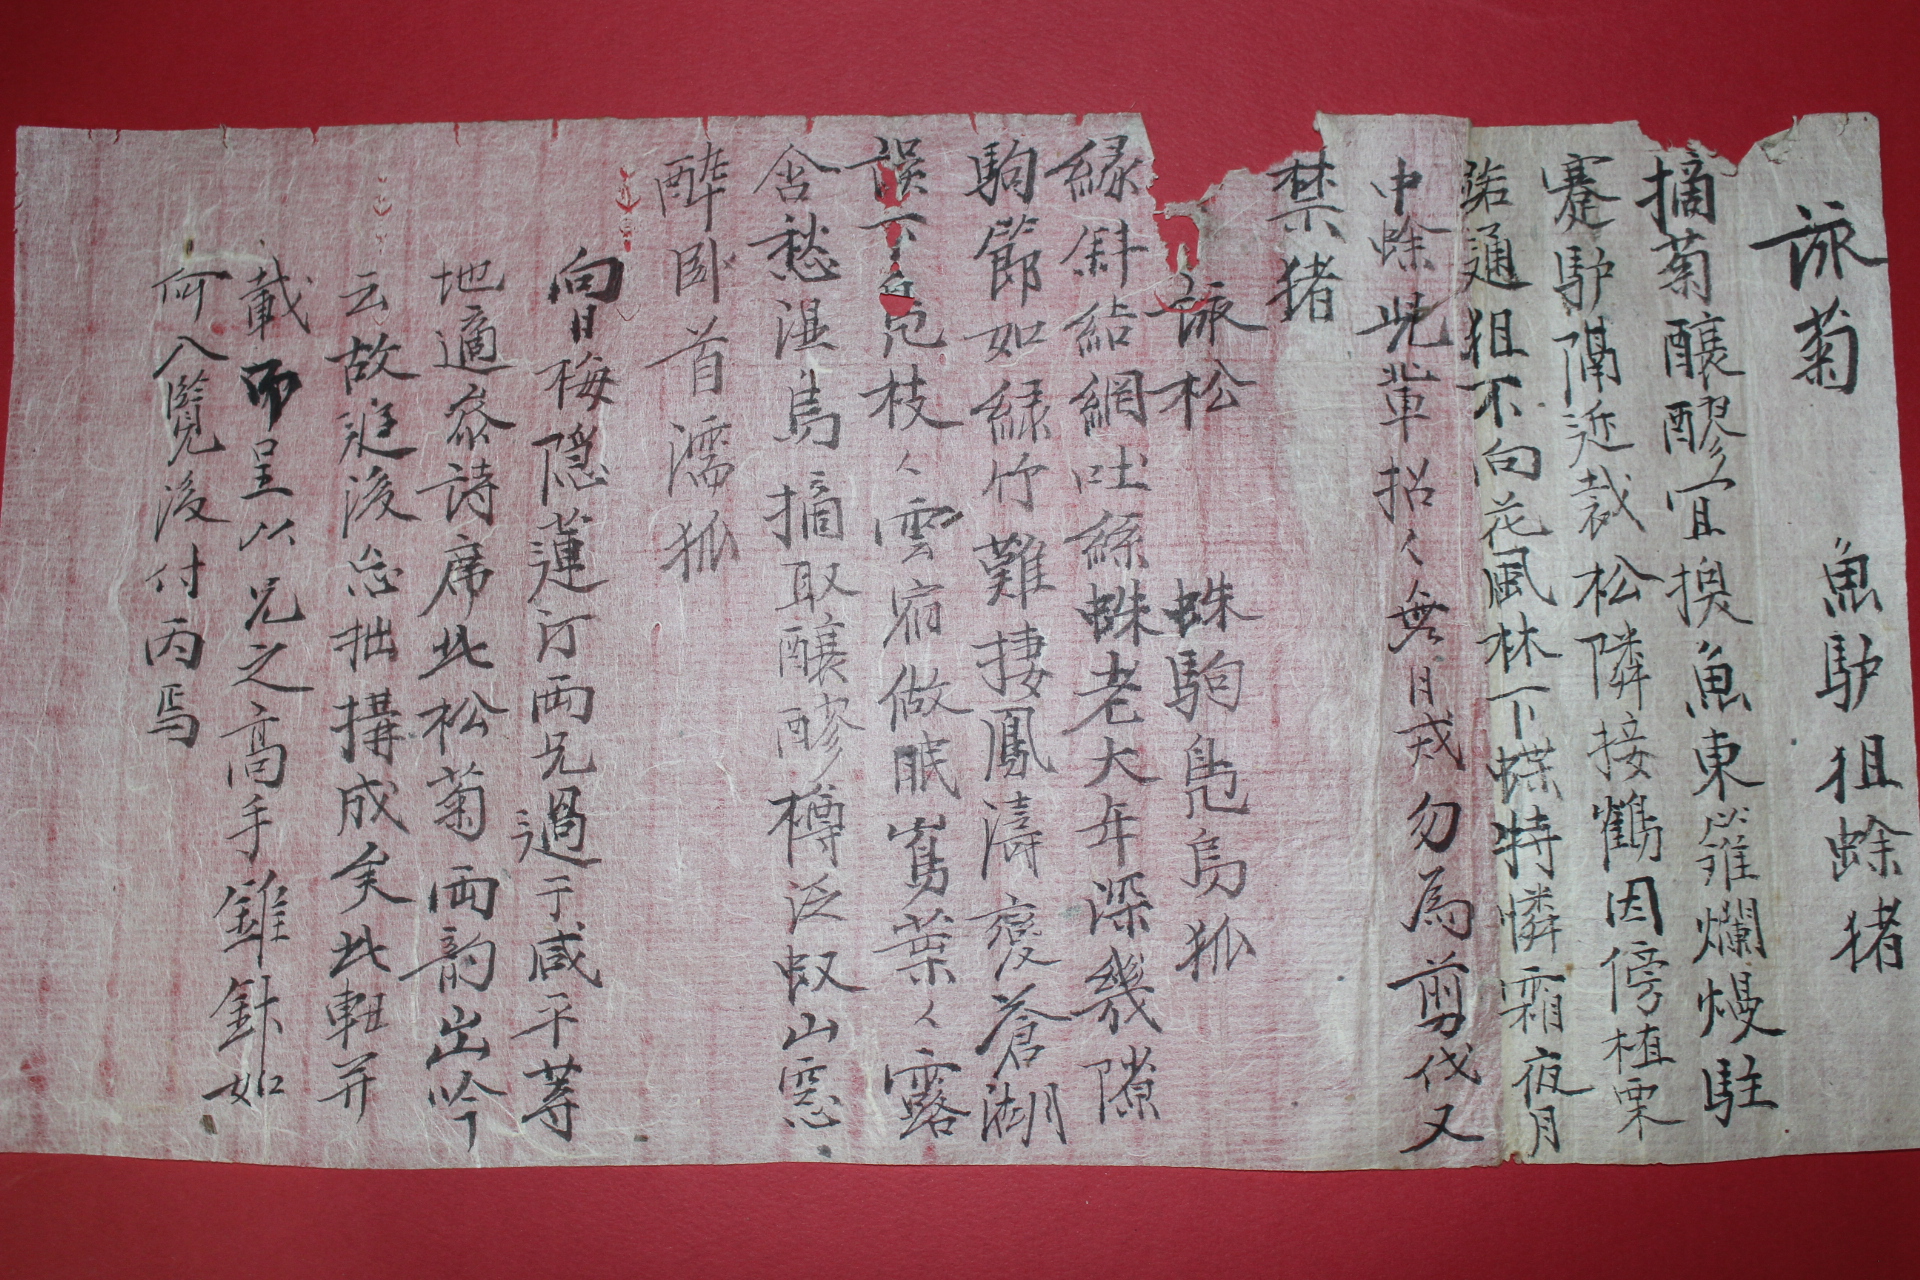 詠菊 魚馿狙蜍猪
摘菊釀醪宜換魚東籬爛熳駐
蹇馿隔近裁松隣接鶴因傍植栗
能通狙不向花風林下蝶特憐霜夜月
中蜍此輩招〻無日戎勿為剪伐又
禁猪
詠松 蛛駒鳧烏狐
緣斜結網吐絲蛛老大年深幾隙
駒節如綠竹難捿鳳濤變蒼湖
誤下鳧枝〻雲宿做眠嵩葉〻露
含愁湿烏摘取釀醪樽泛蚁山窓
醉卧首濡狐
向日梅隠蓮汀兩兄過于咸平等
地適叅詩席此松菊兩韵出吟
云故㢠後忘拙搆成矣此軸并
載而呈以兄之高手雖缺如
何入覽後付丙焉